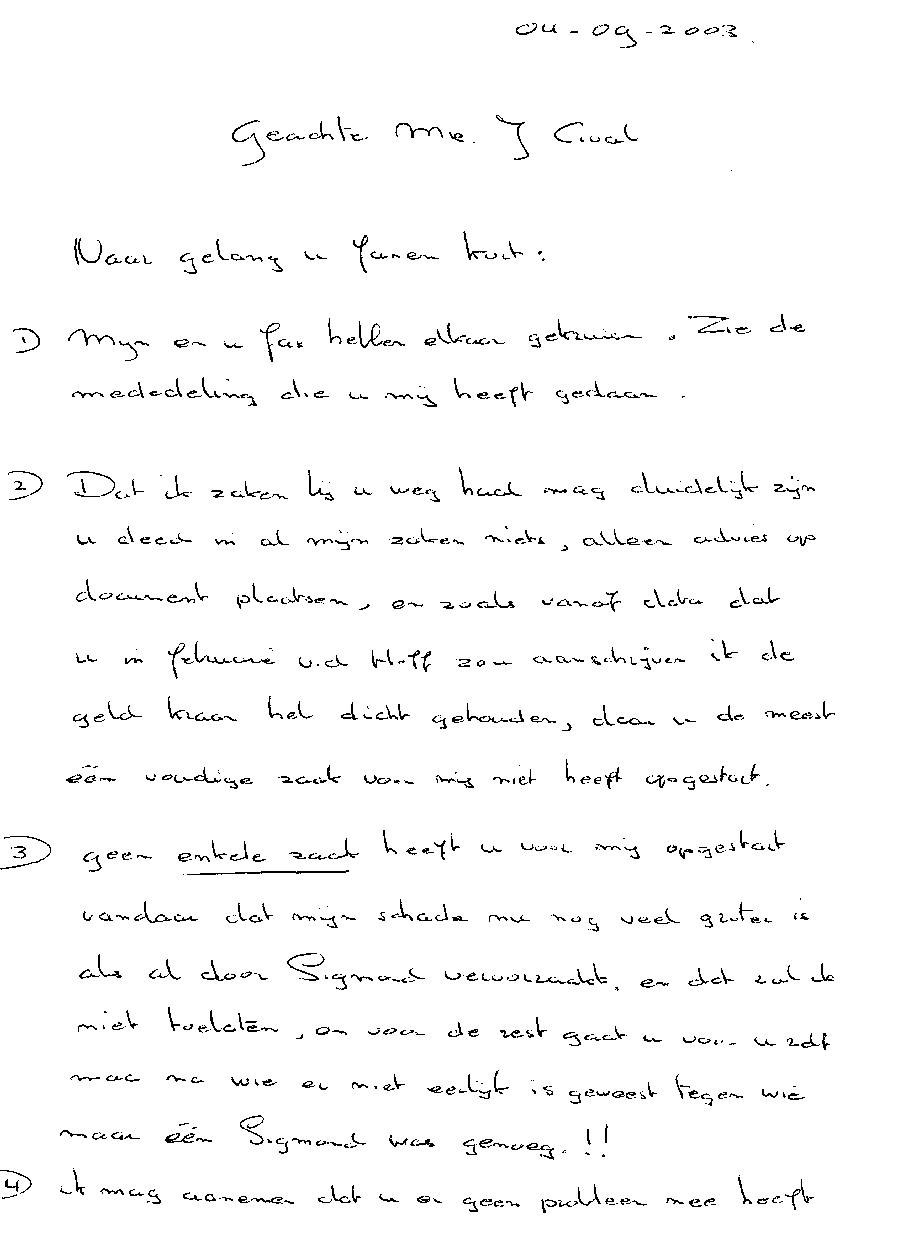 04-09-2003
Geachte Me. J Cival
Naar gelang u faxen kort:
1) Mijn en u fax hebben elkaar gekruien. Zie de
mededeling die u mij heeft gedaan.
2) Dat ik zaken bij u weg had mag duidelijk zijn
u deed in al mijn zaken niets, alleen advies op
document plaatsen, en zoals vanaf data dat
u in februarie v.d Hoff zou aanschrijven ik de
geld kraan heb dicht gehouden, daar u de meest
één voudige zaak voor mij niet heeft opgestart.
3) geen enkele zaak heeft u voor mij opgestart
vandaar dat mijn schade nu nog veel groter is
als al door Sigmond veroorzaakt, en dat zal ik
niet toelaten, en voor de rest gaat u voor u zelf
maar na wie er niet eerlijk is geweest tegen wie
maar één Sigmond was genoeg.!!
4) ik mag aannemen dat u er geen probleem mee heeft